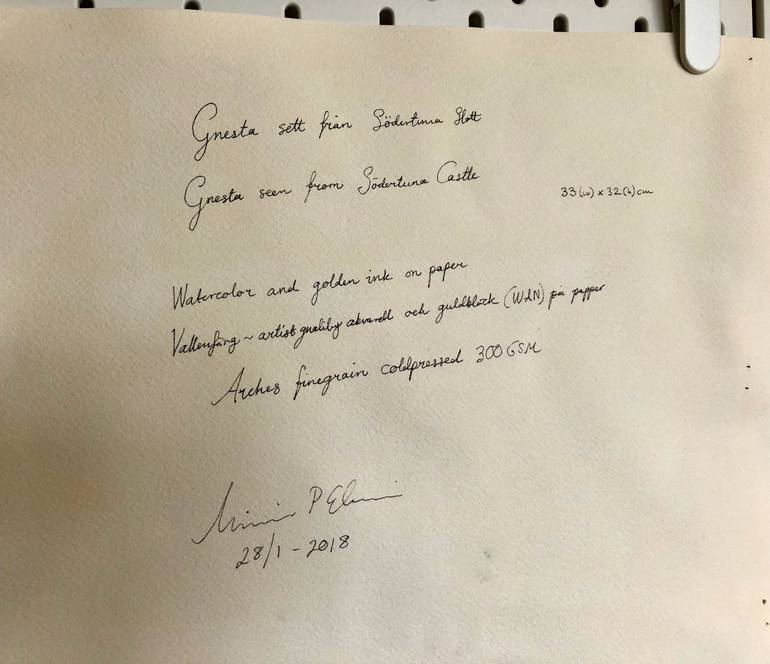 Gnesta sett från Södertuna Slott
Gnesta seen from Södertuna Castle
33(w) x 32(h)cm
Watercolor and golden ink on paper
~ artist quality akvarell och guldbläck (W&N) på papper
Arches finegrain coldpressed 300 GSM
P
28/1 - 2018